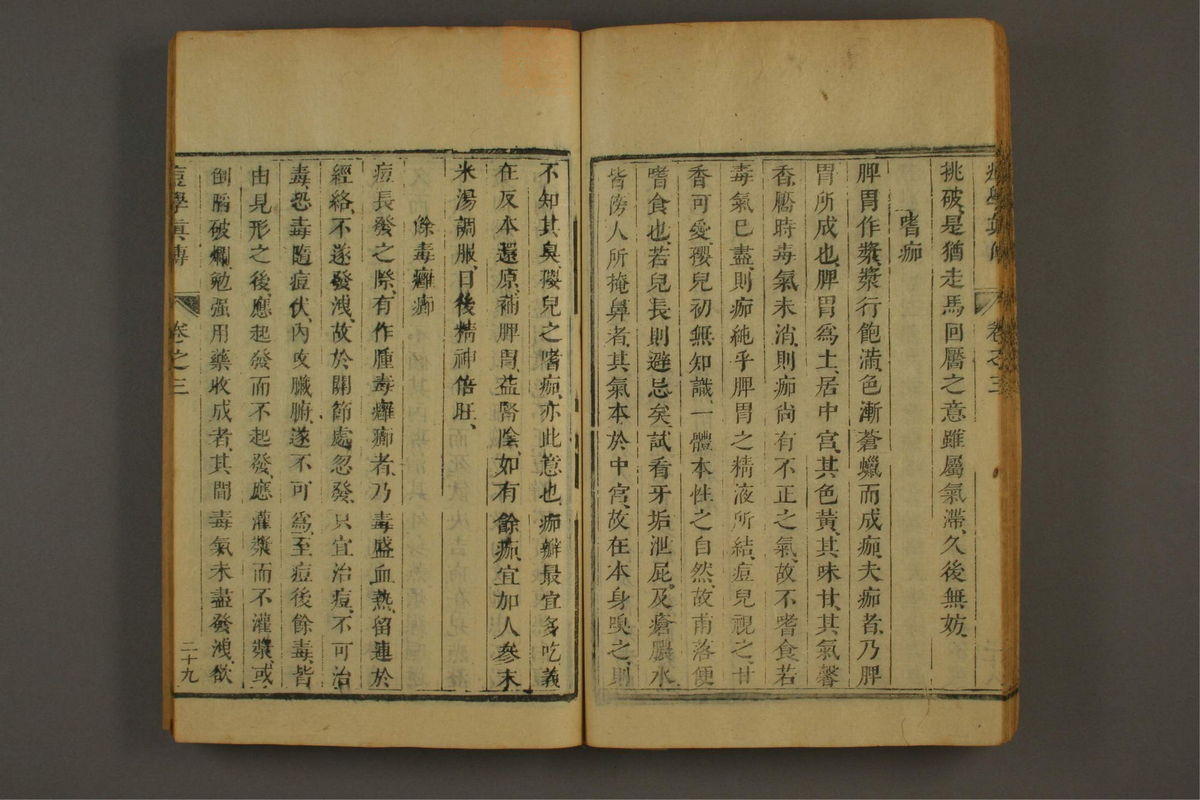 痘學真傳 卷之三
挑破、是猶走馬回黶之意、雖屬氣滯、久後無妨、
嗜痂
脾胃作漿、漿行飽滿、色漸蒼蠟而成痂、夫痂者、乃脾
胃所成也、脾胃爲土、居中宮、其色黃、其味甘、其氣馨
香、黶時毒氣未消、則痂尚有不正之氣、故不嗜食、若
毒氣已盡、則痂純乎脾胃之精液所結、痘兒視之、甘
香可愛、孾兒初無知識、一體本性之自然、故甫落便
嗜食也、若兒長則避忌矣、試看牙垢泄屁、及瘡膿水
皆傍人所掩鼻者、其氣本於中宮、故在本身䑕之、則
不知其臭、孾兒之嗜痂、亦此意也、痂瓣最宜多吃、義
在反本還原、補脾胃、益腎陰、如有餘痂、宜加人參末
米湯調服、日後精神倍旺、
餘毒癰癤
痘長發之際、有作腫毒癰癤者、乃毒盛血熱、留連於
經絡、不遂發洩、故於關節處忽發、只宜治痘、不可治
毒、恐毒隨痘伏、內攻臟腑、遂不可爲、至痘後餘毒、皆
由見形之後、應起發而不起發、應灌漿而不灌漿、或
倒陷破爛、勉强用藥收成者、其間毒氣未盡發洩、欲
痘學真傳 卷之三 二十九